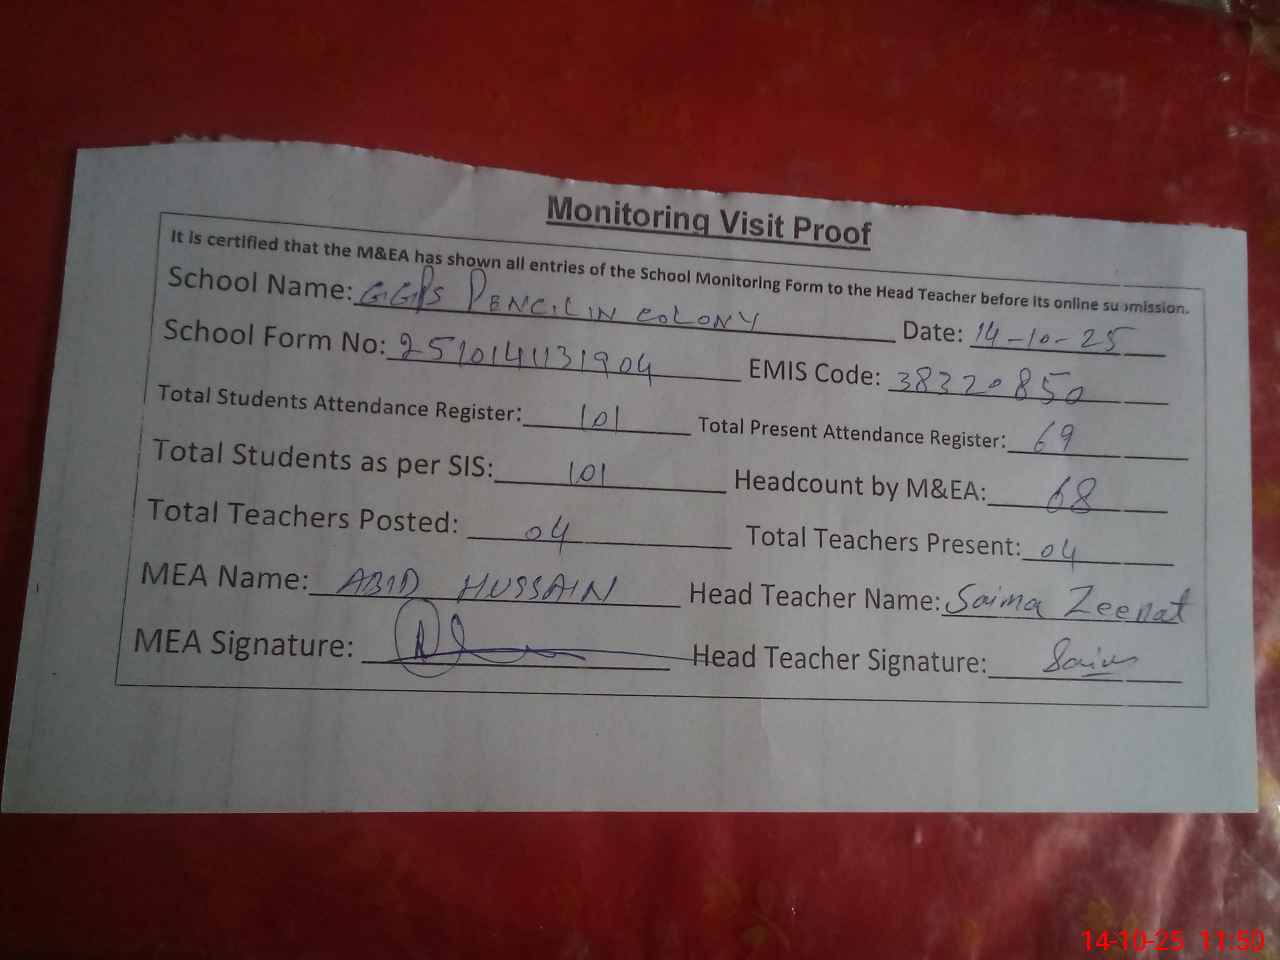 Monitoring Visit Proof
It is certified that the M&EA has shown all entries of the School Monitoring Form to the Head Teacher before its online submission.
School Name: GGPS PENCILIN COLONY Date: 14-10-25
School Form No: 2510141131904 EMIS Code: 38320850
Total Students Attendance Register: 101 Total Present Attendance Register: 69
Total Students as per SIS: 101 Headcount by M&EA: 68
Total Teachers Posted: 04 Total Teachers Present: 04
MEA Name: ABID HUSSAIN Head Teacher Name: Saima Zeenat
MEA Signature: Head Teacher Signature: Saima
14-10-25 11:50